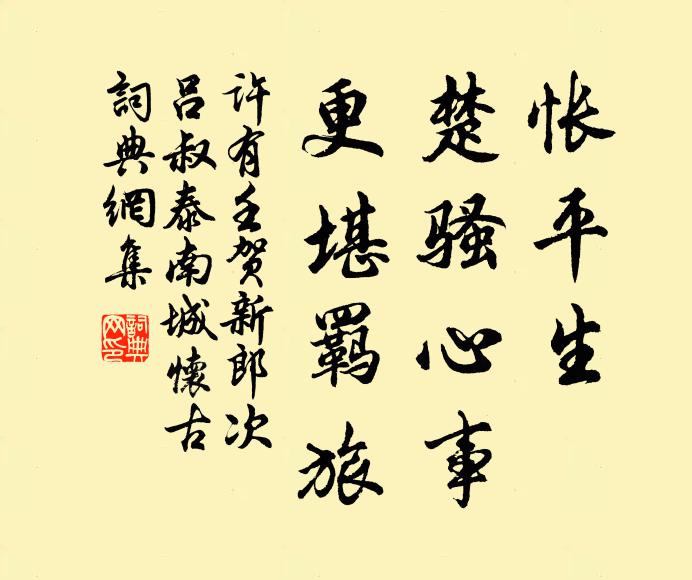 怅平生
楚骚心事
更堪羁旅
许有壬贺新郎次
吕叔泰南城懷古
詞典網集
詞典网印